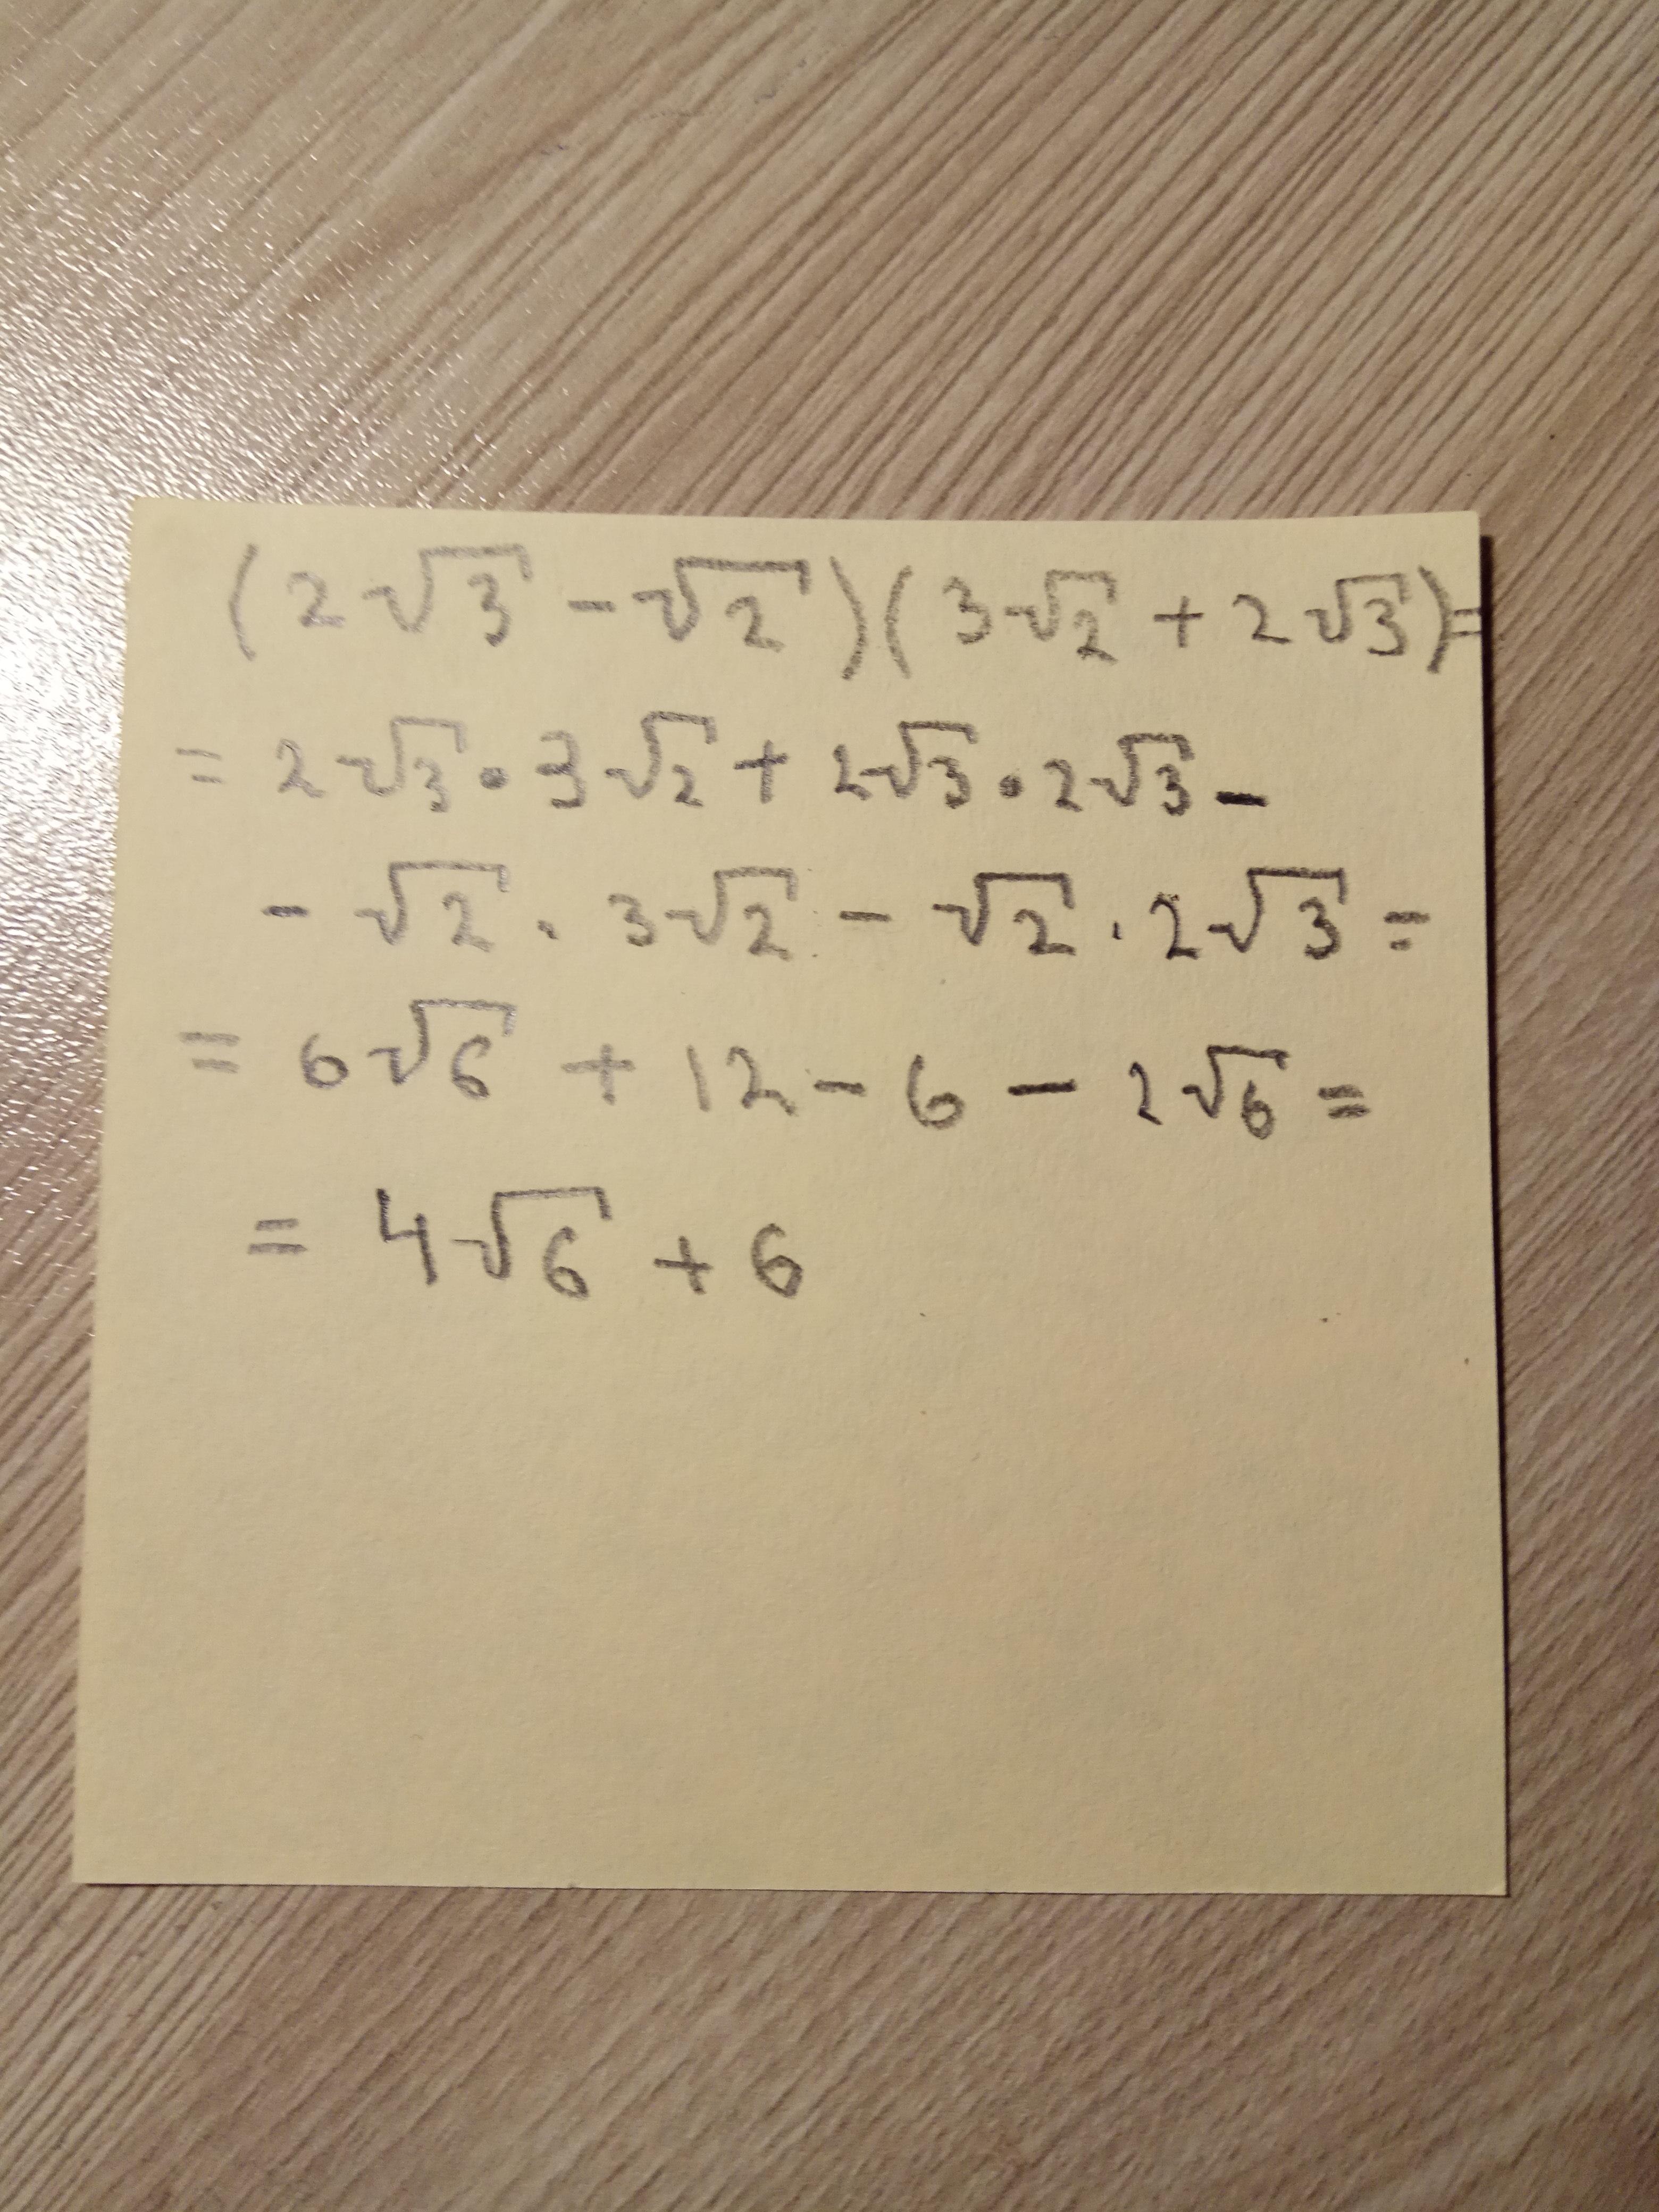 (2√3 - √2)(3√2 + 2√3)=
= 2√3 · 3√2 + 2√3 · 2√3 -
- √2 · 3√2 - √2 · 2√3 =
= 6√6 + 12 - 6 - 2√6 =
= 4√6 + 6